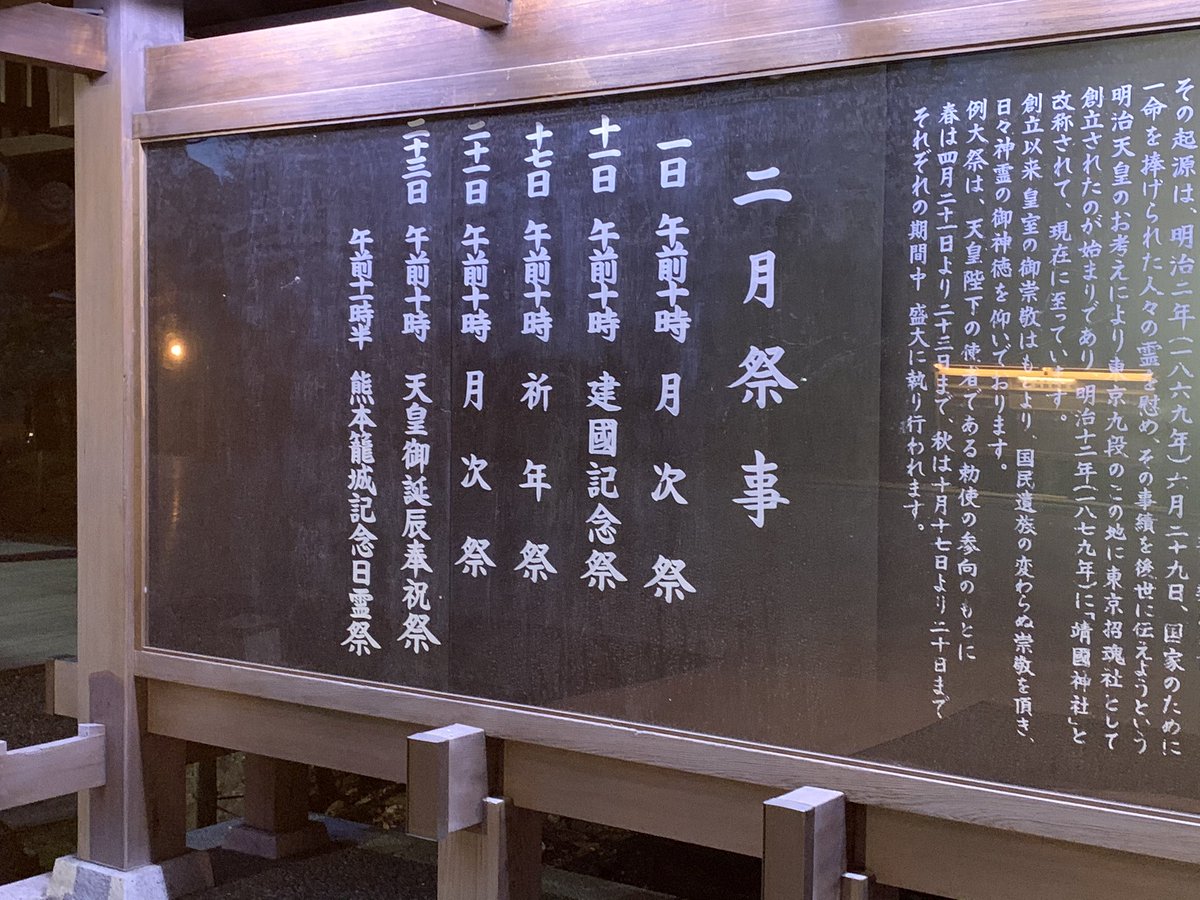 その起源は、明治二年(一八六九年)六月二十九日、国家のために
一命を捧げられた人々の霊を慰め、その事績を後世に伝えようという
明治天皇のお考えにより東京九段のこの地に東京招魂社として
創立されたのが始まりであり、明治十二年(一八七九年)に「靖國神社」と
改称されて、現在に至っています。
創立以来皇室の御崇敬はもとより、国民遺族の変わらぬ崇敬を頂き、
日々神霊の御神徳を仰いでおります。
例大祭は、天皇陛下の使者である勅使の参向のもとに
春は四月二十一日より二十三日まで、秋は十月十七日より二十日まで
それぞれの期間中 盛大に執り行われます。
二月祭事
一日 午前十時 月次祭
十一日 午前十時 建國記念祭
十七日 午前十時 祈年祭
二十一日 午前十時 月次祭
二十三日 午前十時 天皇御誕辰奉祝祭
午前十一時半 熊本籠城記念日霊祭